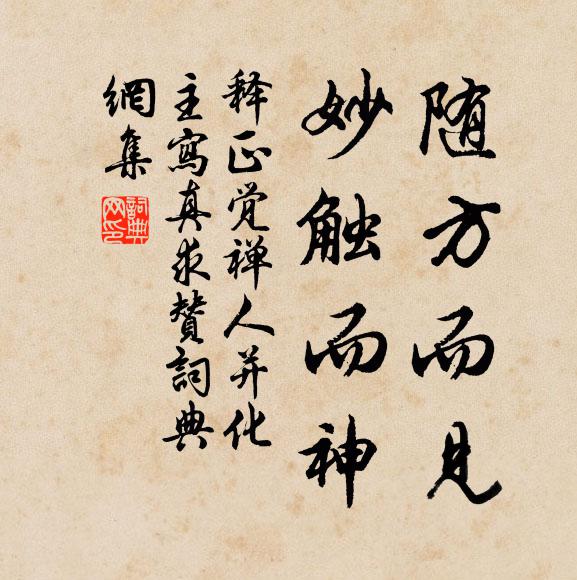 随方而见
妙触而神
释正觉禅人并化
主寫真求赞詞典
網集
詞典
网印